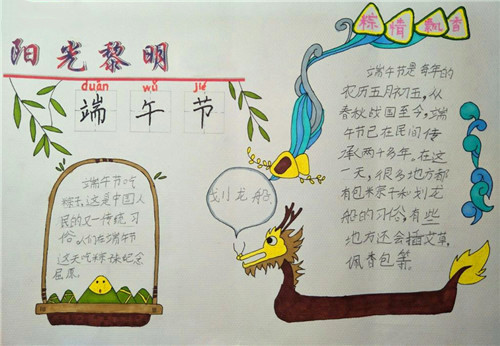 阳光黎明
duān wǔ jié
端午节
端午节吃
粽子,这是中国人
民的又一传统习
俗。人们在端午节
这天吃粽快纪念
屈原。
划龙船
粽情飘香
端午节是每年的
农历五月初五,从
春秋战国至今,端
午节已在民间传
承两千多年。在这
一天,很多地方都
有包米茶干和划龙
船的习俗,有些
地方还会插艾草,
佩香包等。